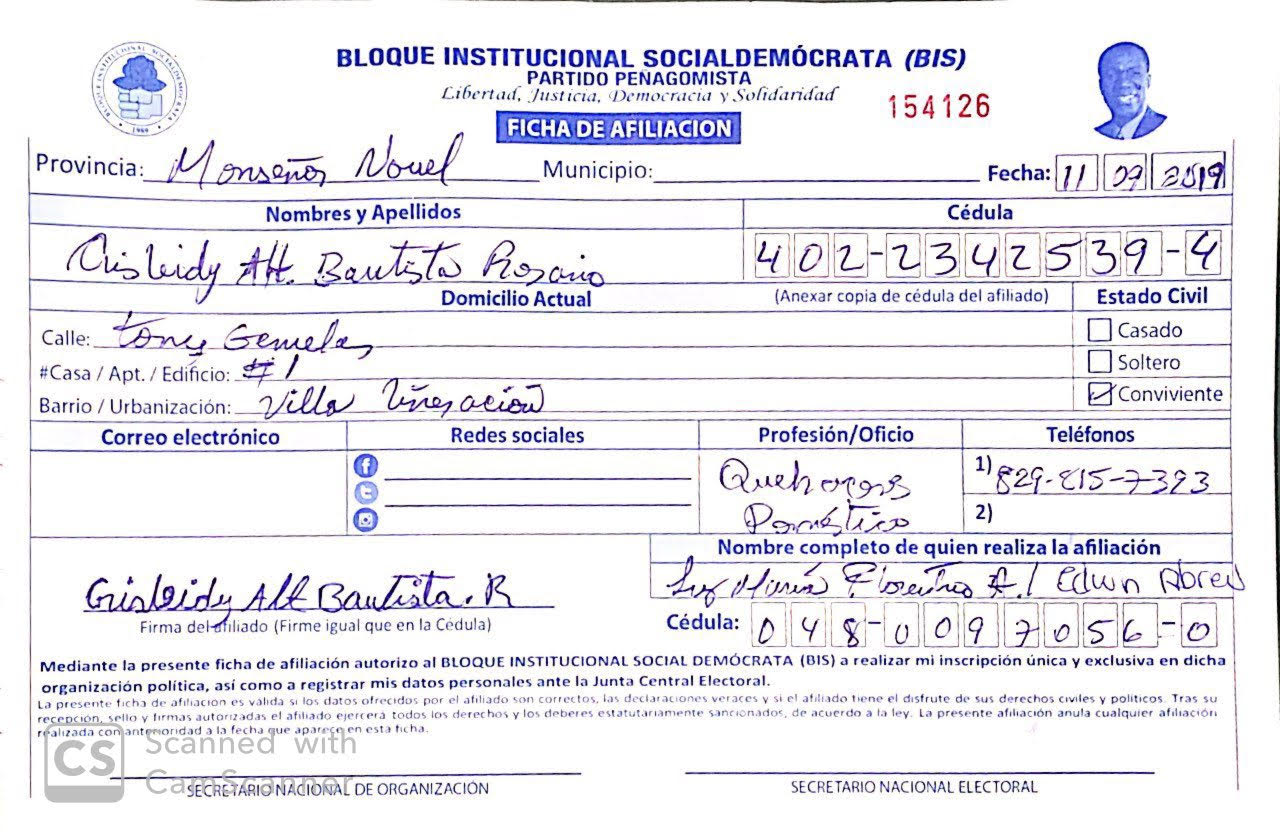 BLOQUE INSTITUCIONAL SOCIALDEMÓCRATA (BIS)
PARTIDO PEÑAGOMISTA
Libertad, Justicia, Democracia y Solidaridad
154126
BLOQUE INSTITUCIONAL SOCIALDEMOCRATA
1989
FICHA DE AFILIACION
Provincia: Monseñor Nouel Municipio: Fecha: 11 09 2019
Nombres y Apellidos Cédula
Crisleidy Alt. Bautista Rosario 402-2342539-4
Domicilio Actual (Anexar copia de cédula del afiliado) Estado Civil
Calle: Gemelas
Casado
#Casa / Apt. / Edificio: #1
Soltero
Barrio / Urbanización: Villa
Conviviente
Correo electrónico Redes sociales Profesión/Oficio Teléfonos
Quehaceres 1) 829-815-7393
Doméstico 2)
Nombre completo de quien realiza la afiliación
Luz María Florentino A. / Edwin Abreu
Crisleidy Alt Bautista. R
Firma del afiliado (Firme igual que en la Cédula)
Cédula: 048-0097056-0
Mediante la presente ficha de afiliación autorizo al BLOQUE INSTITUCIONAL SOCIAL DEMÓCRATA (BIS) a realizar mi inscripción única y exclusiva en dicha
organización política, así como a registrar mis datos personales ante la Junta Central Electoral.
La presente ficha de afiliacion es valida si los datos ofrecidos por el afiliado son correctos, las declaraciones veraces y si el afiliado tiene el disfrute de sus derechos civiles y políticos. Tras su
recepción, sello y firmas autorizadas el afiliado ejercerá todos los derechos y los deberes estatutariamente sancionados, de acuerdo a la ley. La presente afiliación anula cualquier afiliación
realizada con anterioridad a la fecha que aparece en esta ficha.
CS Scanned with
CamScanner
SECRETARIO NACIONAL DE ORGANIZACIÓN SECRETARIO NACIONAL ELECTORAL